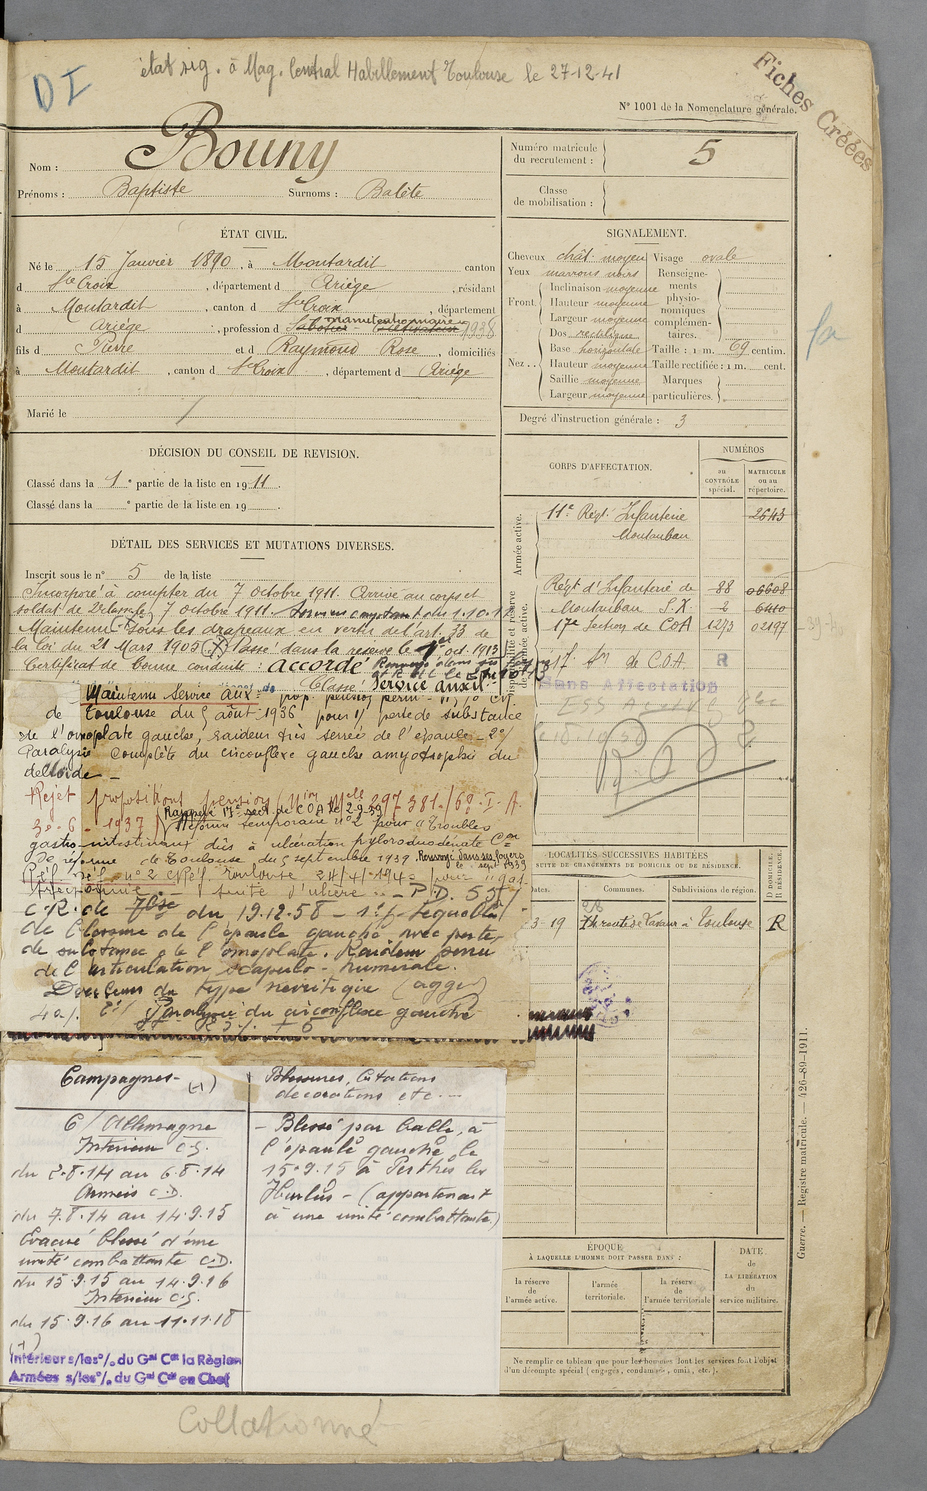 D I
état sig. à Mag. Central Habillement Toulouse le 27-12-41
Fiches Créées
N° 1001 de la Nomenclature générale.
Nom : Bouny
Prénoms : Baptiste Surnoms : Balète
Numéro matricule du recrutement : 5
Classe de mobilisation :
ÉTAT CIVIL.
Né le 15 Janvier 1890, à Montardit canton
d Ste Croix, département d Ariège, résidant
à Montardit, canton d Ste Croix, département
d Ariège, profession d Sabotier - Cultivateur manutentionnaire 1938
fils d Pierre et d Raymond Rose, domiciliés
à Montardit, canton d Ste Croix, département d Ariège
Marié le /
SIGNALEMENT.
Cheveux chât. moyen Visage ovale
Yeux marrons noirs
Front. Inclinaison moyenne
Hauteur moyenne
Largeur moyenne
Nez.. Dos rectiligne
Base horizontale
Hauteur moyenne
Saillie moyenne
Largeur moyenne
Renseignements physionomiques complémentaires.
Taille : 1 m. 69 centim.
Taille rectifiée : 1 m. cent.
Marques particulières.
Degré d'instruction générale : 3
fa
DÉCISION DU CONSEIL DE REVISION.
Classé dans la 1e partie de la liste en 1911.
Classé dans la e partie de la liste en 19
DÉTAIL DES SERVICES ET MUTATIONS DIVERSES.
Inscrit sous le n° 5 de la liste
Incorporé à compter du 7 octobre 1911. Arrivé au corps et
soldat de 2e classe le 7 octobre 1911. Service comptant du 1.10.11
Maintenu sous les drapeaux en vertu de l'art. 33 de
la loi du 21 Mars 1905 (x) Passé dans la réserve le 1er oct. 1913
Certificat de bonne conduite : accordé
Classé Service auxil.
Maintenu service aux. prop. pension perm.
de Toulouse du 5 août 1936 pour 1/ perte de substance
de l'omoplate gauche, raideur très serrée de l'épaule - 2°/
Paralysie complète du circonflexe gauche amyotrophie du
deltoïde -
Rejet propositions pension 297381/68-I-A.
30-6-1937
Rappelé 17e sect. de COA le 2-9-39
Réforme temporaire n° 2 pour "Troubles
gastro-intestinaux dûs à ulcération pyloroduodénale Con
de réforme de Toulouse du 5 septembre 1939. Renvoyé dans ses foyers
suite d'ulcère
C.R. de du 19.12.58 - 1°/ Séquelles
de blessure de l'épaule gauche avec perte
de substance de l'omoplate. Raideur serrée
de l'articulation scapulo-humérale.
Douleurs du type névritique (aggr)
2°/ Paralysie du circonflexe gauche
CORPS D'AFFECTATION.
NUMÉROS
au CONTRÔLE spécial.
MATRICULE ou au répertoire.
Armée active.
11e Régt. Infanterie 2643
Montauban
Disponibilité et réserve de l'armée active.
Régt d'Infanterie de 88 06608
Montauban S.X. 2 6410
17e Section de COA 1273 02197
17 Son de C.O.A. R
Sans Affectation
LOCALITÉS SUCCESSIVES HABITÉES
PAR SUITE DE CHANGEMENTS DE DOMICILE OU DE RÉSIDENCE.
Dates. Communes. Subdivisions de région. D DOMICILE. R RÉSIDENCE.
3-19 28 Th route de Lavaur à Toulouse R
Campagnes- (1)
C/ Allemagne
Intérieur C.S.
du 2.8.14 au 6.8.14
Armées C.D.
du 7.8.14 au 14.9.15
Evacué blessé d'une
unité combattante C.D.
du 15.9.15 au 14.9.16
Intérieur C.S.
du 15.9.16 au 11.11.18
(1)
Intérieur s/les°/₀ du Gal Ct la Région
Armées s/les°/₀ du Gal Ct en Chef
Blessures, Citations
décorations etc...
- Blessé par balle, à
l'épaule gauche le
15.9.15 à Perthes les
Hurlus - (appartenant
à une unité combattante)
ÉPOQUE
À LAQUELLE L'HOMME DOIT PASSER DANS :
la réserve de l'armée active.
l'armée territoriale.
la réserve de l'armée territoriale
DATE DE LA LIBÉRATION du service militaire.
Ne remplir ce tableau que pour les hommes dont les services font l'objet
d'un décompte spécial (engagés, condamnés, omis, etc.)
Guerre. — Registre matricule. — 426-89-1911.
Collationné